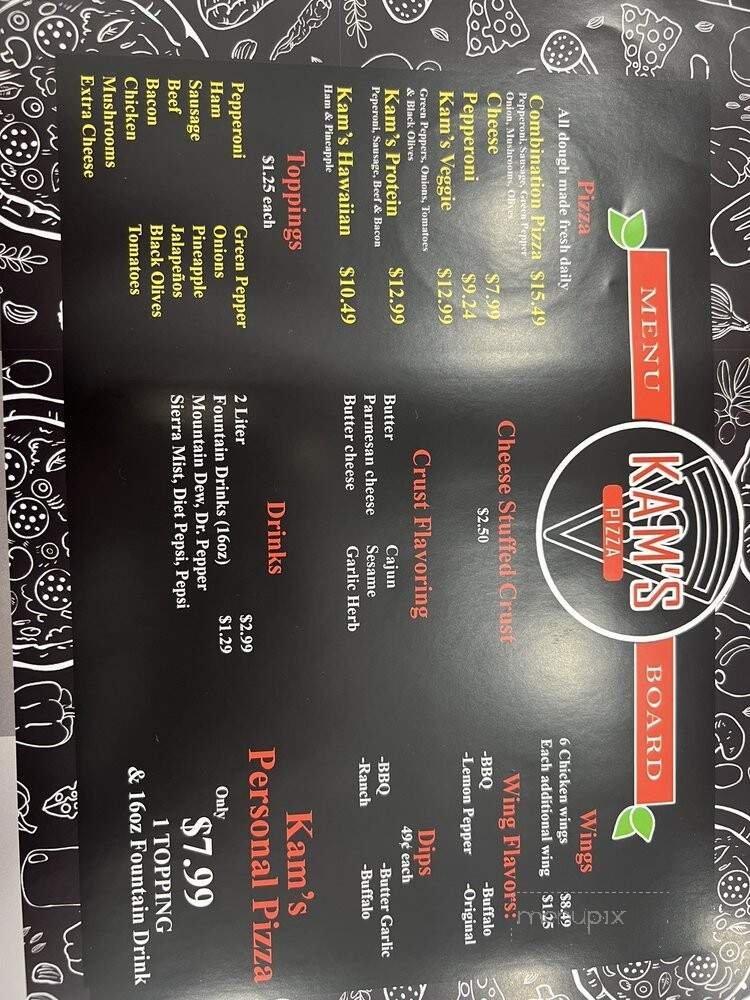 MENU
KAM'S
PIZZA
BOARD
Pizza
All dough made fresh daily
Combination Pizza $15.49
Pepperoni, Sausage, Green Pepper
Onion, Mushrooms, Olives
Cheese $7.99
Pepperoni $9.24
Kam's Veggie $12.99
Green Peppers, Onions, Tomatoes
& Black Olives
Kam's Protein $12.99
Peperoni, Sausage, Beef & Bacon
Kam's Hawaiian $10.49
Ham & Pineapple
Toppings
$1.25 each
Pepperoni Green Pepper
Ham Onions
Sausage Pineapple
Beef Jalapeños
Bacon Black Olives
Chicken Tomatoes
Mushrooms
Extra Cheese
Cheese Stuffed Crust
$2.50
Crust Flavoring
Butter Cajun
Parmesan cheese Sesame
Butter cheese Garlic Herb
Drinks
2 Liter $2.99
Fountain Drinks (16oz) $1.29
Mountain Dew, Dr. Pepper
Sierra Mist, Diet Pepsi, Pepsi
Wings
6 Chicken wings $8.49
Each additional wing $1.25
Wing Flavors:
-BBQ -Buffalo
-Lemon Pepper -Original
Dips
49¢ each
-BBQ -Butter Garlic
-Ranch -Buffalo
Kam's
Personal Pizza
Only
$7.99
1 TOPPING
& 16oz Fountain Drink
menupix